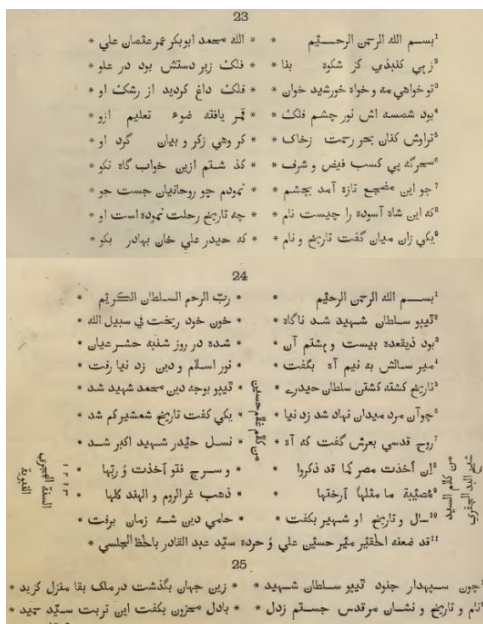 23
¹بسم الله الرحمن الرحيم * * الله محمد ابوبكر عمر عثمان علي *
²زهي كنبذي كز شكوه بنا * * فلك زير دستش بود در علو *
³تو خواهي مه و خواه خورشيد خوان * * فلك داغ كرديد از رشك او *
⁴بود شمسه اش نور چشم فلك * * قمر يافته ضوء تعليم ازو *
⁵تراوش كنان بحر رحمت زخاك * * كروهي زكر و بيان گرد او *
⁶سحرگه پي كسب فيض و شرف * * كذشتم ازين خواب گاه نكو *
⁷چو اين مضجع تازه آمد بچشم * * نمودم چو روحانيان جست جو *
⁸كه اين شاه آسوده را چيست نام * * چه تاريخ رحلت نموده است او *
⁹يكي زان ميان گفت تاريخ و نام * * كه حيدر علي خان بهادر بكو *
24
¹بسم الله الرحمن الرحيم * * ربّ الرحم السلطان الكريم *
²ٹيپو سلطان شهيد شد ناگاه * * خون خود ريخت في سبيل الله *
³بود ذيقعده بيست و هشتم آن * * شده در روز شنبه حشر عيان *
⁴مير سالش به نيم آه بگفت * * نور اسلام و دين ز دنيا رفت *
⁵تاريخ كشته كشتن سلطان حيدرے * * ٹيپو بوجه دين محمد شهيد شد *
⁶چو آن مرد ميدان نهان شد ز دنيا * * يكي گفت تاريخ شمشير گم شد *
⁷روح قدسي بعرش گفت كه آه * * نسل حيدر شهيد اكبر شد *
من كلام غلام حسين
⁸ان أخذت مصر كما قد ذكروا *
⁹مصيبة ما مثلها أرختها * * ذهب عز الروم و الهند كلها *
من كلام السيد
السنة الهجرية النبوية
١٢١٣
¹⁰سال و تاريخ او شهير بگفت * * حامي دين شه زمان برفت *
¹¹قد ضعفه الحقير مير حسين علي و حرده سيّد عبد القادر
25
¹چون سپهدار جنود ٹيپو سلطان شهيد * * زين جهان بگذشت در ملك بقا منزل گزيد *
²نام و تاريخ و نشان مرقدس جستم زدل * * بادل محزون بگفت اين تربت سيّد حميد *